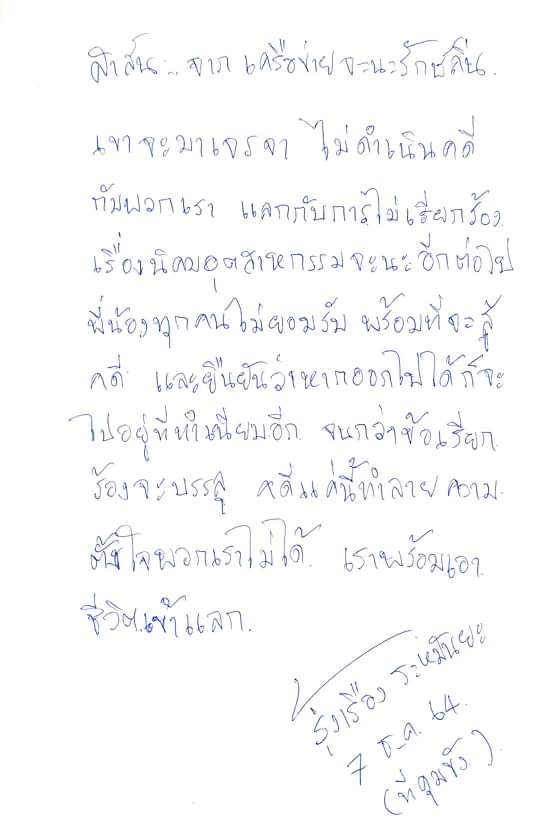 คำสั่น... จาก เครือข่ายจะนะรักษ์ถิ่น.
เขาจะมาเจรจา ไม่ดำเนินคดี
กับพวกเรา แลกกับการไม่เรียกร้อง
เรื่องนิคมอุตสาหกรรมจะนะอีกต่อไป
พี่น้องทุกคนไม่ยอมรับ พร้อมที่จะสู้
คดี และยืนยันว่าหากออกไปได้ก็จะ
ไปอยู่ที่ทำเนียบอีก จนกว่าข้อเรียก
ร้องจะบรรลุ คดีแค่นี้ทำลายความ
ตั้งใจพวกเราไม่ได้. เราพร้อมเอา
ชีวิตเข้าแลก.
รุ่งเรือง ระหมันยะ
7 ธ.ค. 64.
(ที่คุมขัง.)